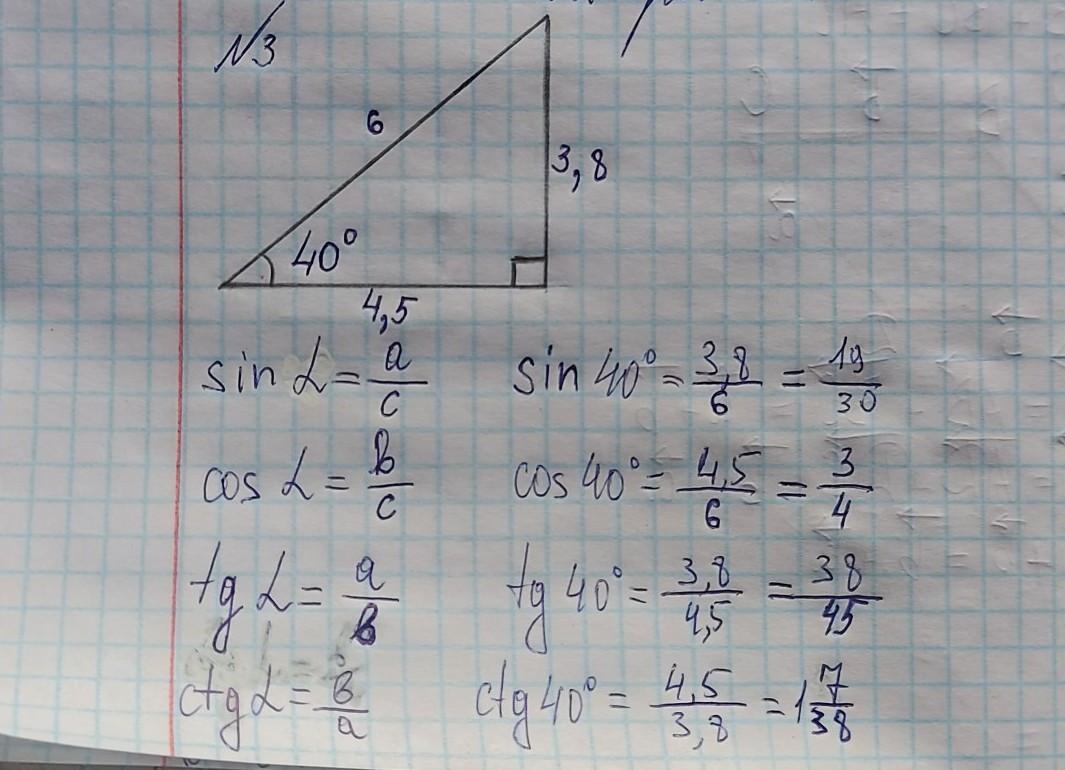 №3
6
3,8
40°
4,5
sin α = a/c sin 40° = 3,8/6 = 19/30
cos α = b/c cos 40° = 4,5/6 = 3/4
tg α = a/b tg 40° = 3,8/4,5 = 38/45
ctg α = b/a ctg 40° = 4,5/3,8 = 1 7/38